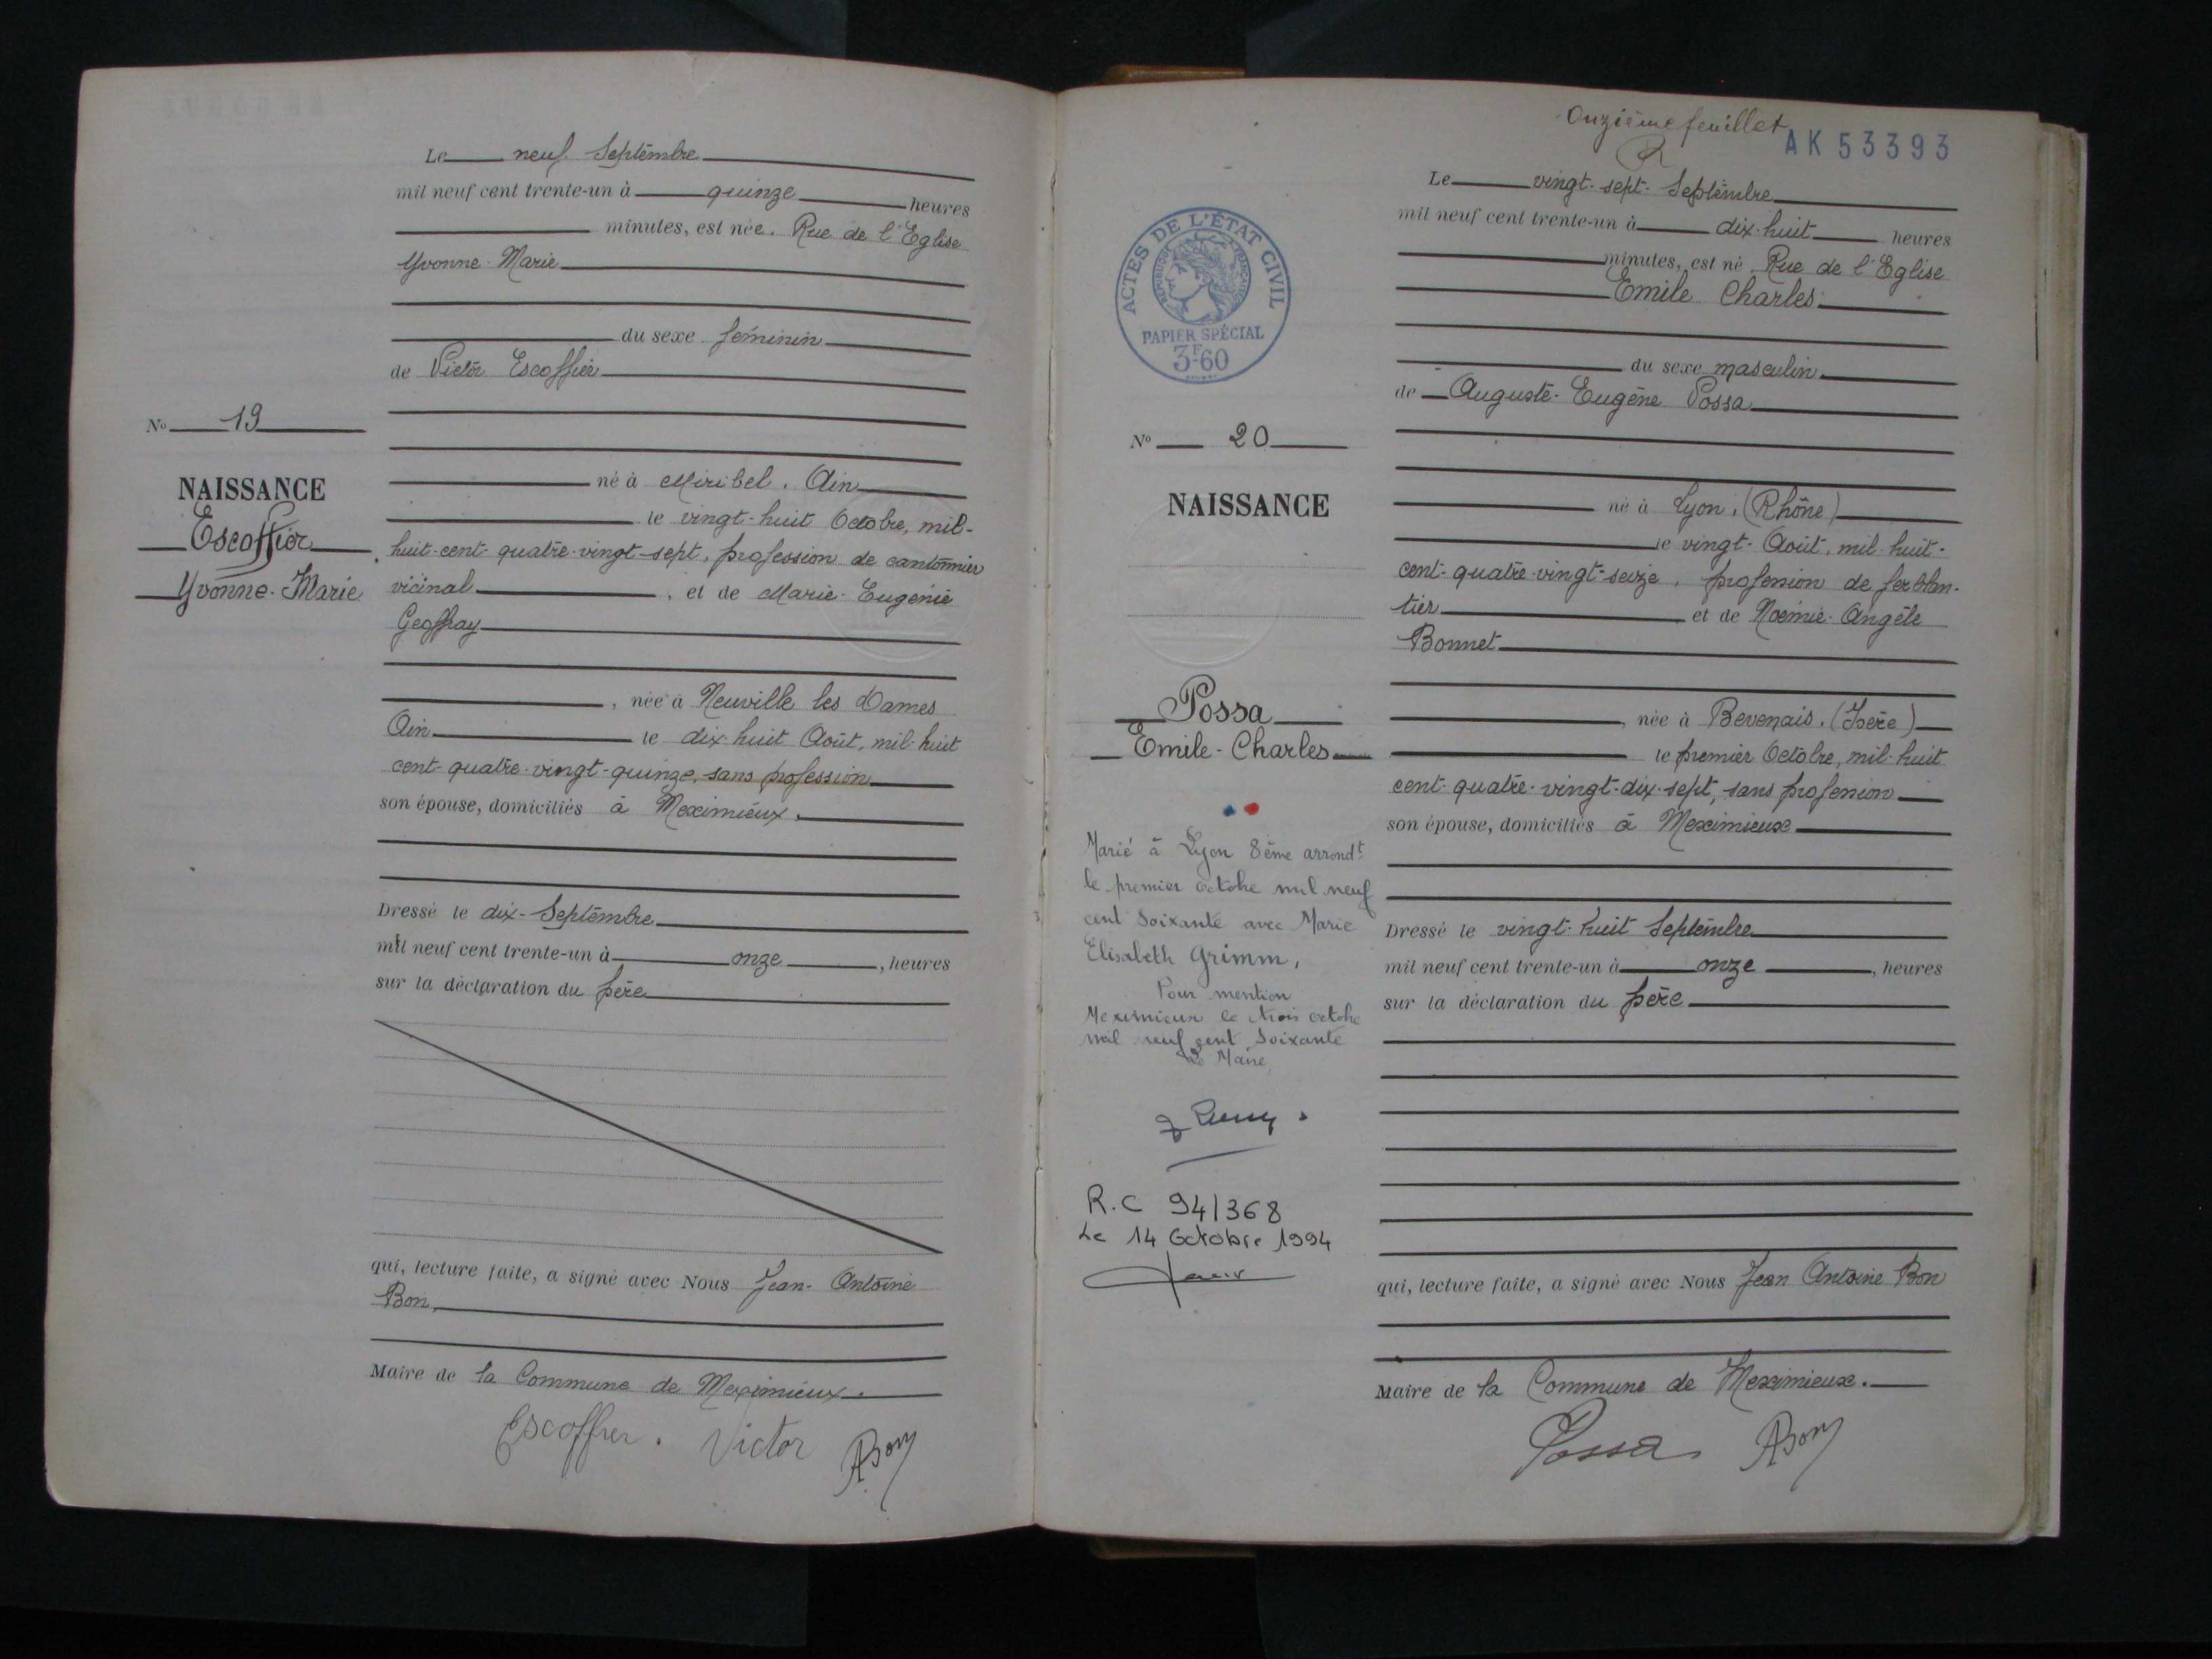 Le neuf Septembre
mil neuf cent trente-un à quinze heures
minutes, est née. Rue de l'Eglise
Yvonne-Marie
du sexe féminin
de Victor Escoffier
No 19
né à Miribel. Ain
NAISSANCE
le vingt-huit Octobre, mil-
Escoffier
huit-cent-quatre-vingt-sept, profession de cantonnier
Yvonne-Marie
vicinal, et de Marie-Eugénie
Geoffray
, née à Neuville les Dames
Ain le dix-huit Août, mil-huit
cent-quatre-vingt-quinze, sans profession
son épouse, domiciliés à Meximieux.
Dressé le dix-Septembre
mil neuf cent trente-un à onze, heures
sur la déclaration du père
qui, lecture faite, a signé avec Nous Jean-Antoine
Bon,
Maire de la Commune de Meximieux.
Escoffier. Victor ABon
Onzième feuillet
AK 53393
Le vingt-sept-Septembre
mil neuf cent trente-un à dix-huit heures
minutes, est né Rue de l'Eglise
Emile Charles
ACTES DE L'ÉTAT CIVIL
RÉPUBLIQUE FRANÇAISE
PAPIER SPÉCIAL
3F60
du sexe masculin
de Auguste-Eugène Possa
No 20
NAISSANCE
né à Lyon, (Rhône)
le vingt-Août, mil-huit-
cent-quatre-vingt-seize, profession de ferblan-
tier et de Noémie-Angèle
Bonnet
Possa
Emile-Charles
, née à Bevenais. (Isère)
le premier Octobre, mil-huit
cent-quatre-vingt-dix-sept, sans profession
son épouse, domiciliés à Meximieux
Marié à Lyon 8ème arrondt
le premier octobre mil neuf
cent soixante avec Marie
Elisabeth Grimm,
Pour mention
Meximieux le trois octobre
mil neuf cent soixante
Le Maire,
R.C 94/368
Le 14 Octobre 1994
Dressé le vingt-huit Septembre
mil neuf cent trente-un à onze, heures
sur la déclaration du père
qui, lecture faite, a signé avec Nous Jean Antoine Bon
Maire de la Commune de Meximieux.
Possa ABon